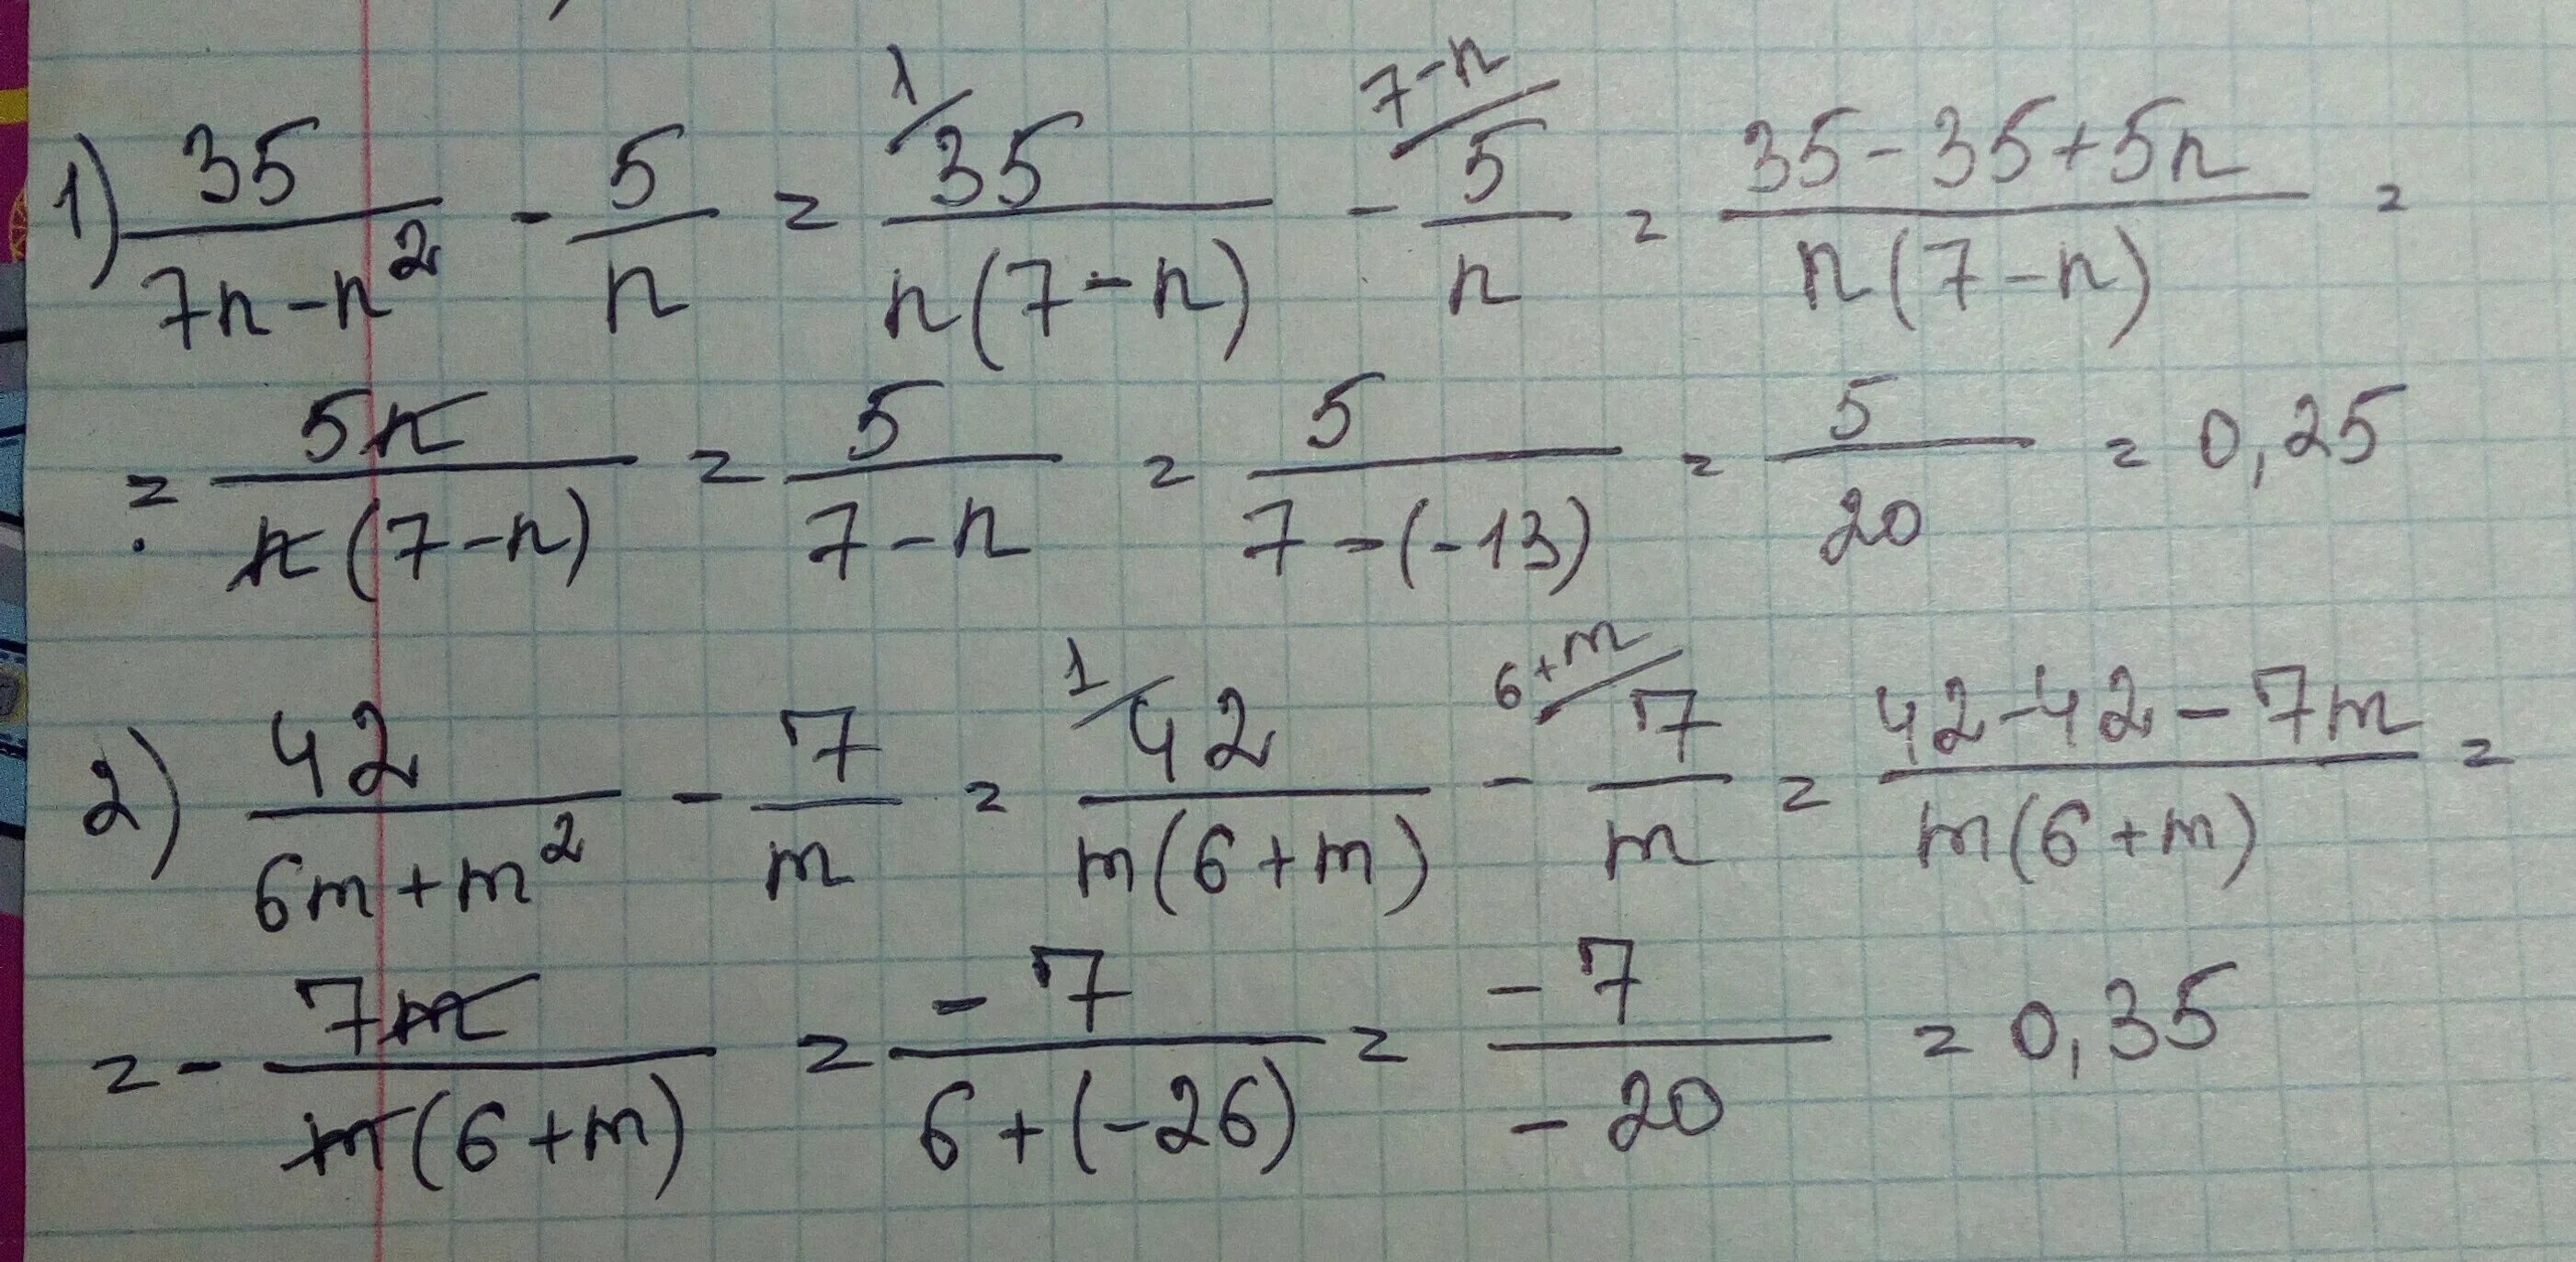 1) 35/(7n-n²) - 5/n = ¹/35/(n(7-n)) - ⁷⁻ⁿ/5/n = (35-35+5n)/(n(7-n)) =
= 5n/(n(7-n)) = 5/(7-n) = 5/(7-(-13)) = 5/20 = 0,25
2) 42/(6m+m²) - 7/m = ¹/42/(m(6+m)) - ⁶⁺ᵐ/7/m = (42-42-7m)/(m(6+m)) =
= - 7m/(m(6+m)) = -7/(6+(-26)) = -7/-20 = 0,35